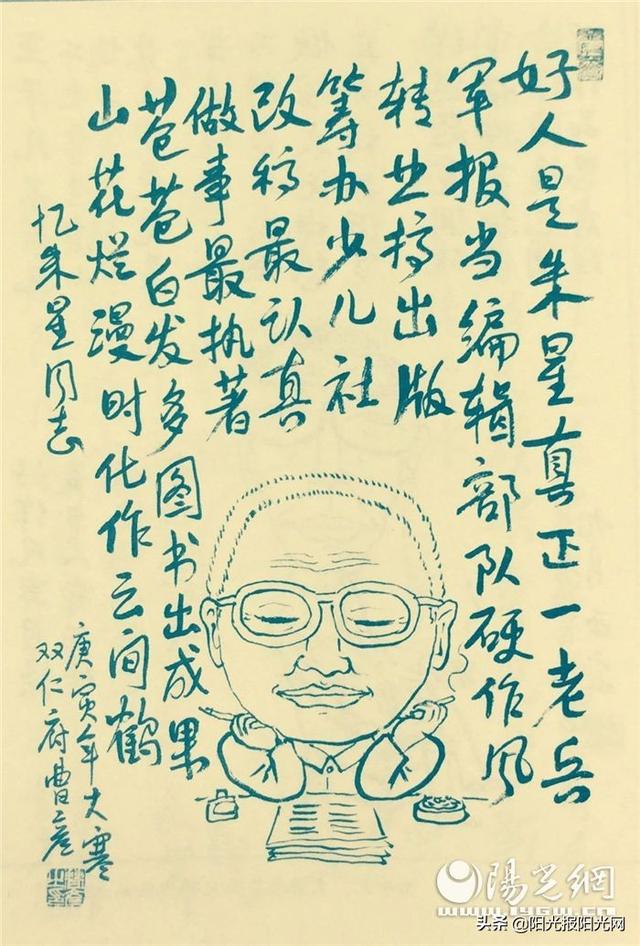 好人是朱星真正一老兵
军报当编辑部队硬作风
转业搞出版
筹办少儿社
改稿最认真
做事最执著
苍苍白发多图书出成果
山花烂漫时化作云间鹤
忆朱星同志
庚寅年大寒
双仁府曹彦
陽光網
头条 @阳光报阳光网